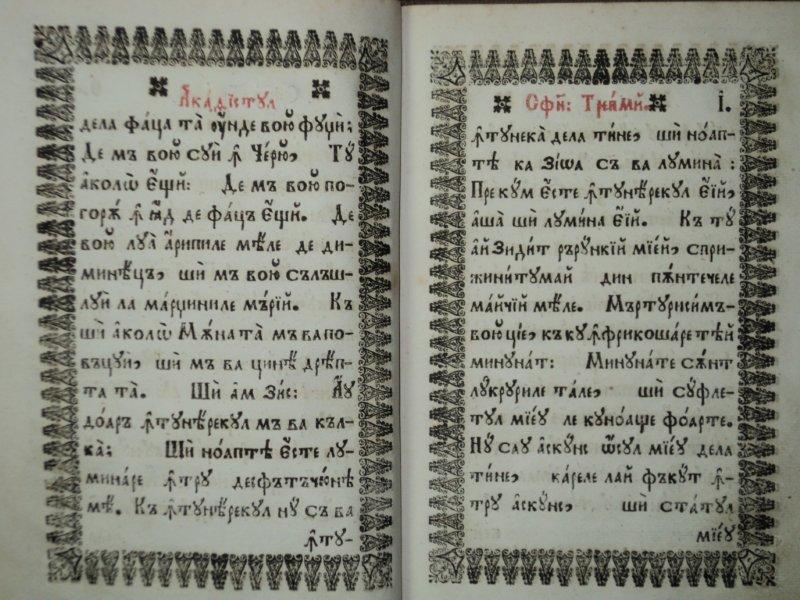 А҆каѳїстꙋл
дела фаца та ᲂу҆нде воюⷹ фꙋџи:
Де мъ воюⷹ сꙋи ꙟ҆ Черю, Тꙋ
а҆колѡ є҆щи: Де мъ воюⷹ по-
горѫ ꙟ҆ І҆ад де фацъ є҆щи. Де
воюⷹ лꙋа а҆рипиле мѣле де ди-
минѣцъ, ши мъ воюⷹ сълъш-
лꙋи ла марџиниле мърїй. Къ
ши а҆колѡ Мѫна та мъ ва по-
въцꙋи, ши мъ ва цинѣ дрѣп-
та та. Ши ам Зис: А҆ꙋ
доаръ ꙟ҆тꙋнѣрекꙋл мъ ва кал-
ка: Ши но́аптѣ є҆сте лꙋ-
минаре ꙟ҆трꙋ десфътъчюнѣ
мѣ. Къ ꙟ҆тꙋнѣрекꙋл нꙋ съ ва
ꙟ҆тꙋ-
Сфи: Трѡими. І҃.
ꙟ҆тꙋнека дела ти́не, ши но́ап-
тѣ ка Зїѡа съ ва лꙋмина:
Прекꙋм є҆сте ꙟ҆тꙋнѣрекꙋл є҆їй,
а҆ша ши лꙋмина є҆їй. Къ тꙋ
ай Зидит рърꙋнкїй мїей, сприж-
жинитꙋмай дин пѫнтечеле
майчїй мѣле. Мъртꙋрисим-
воюⷹ цїе, къ кꙋ ꙟ҆фрикошаре тей
минꙋнат: Минꙋнате сѫнт
лꙋкрꙋриле тале, ши сꙋфле-
тꙋл мїеꙋ ле кꙋноаще фоарте.
Нꙋ саꙋ а҆скꙋнс ѡ҆сꙋл мїеꙋ дела
ти́не, кареле лай фъкꙋт ꙟ҆-
трꙋ а҆скꙋнс, ши статꙋл
мїеꙋ